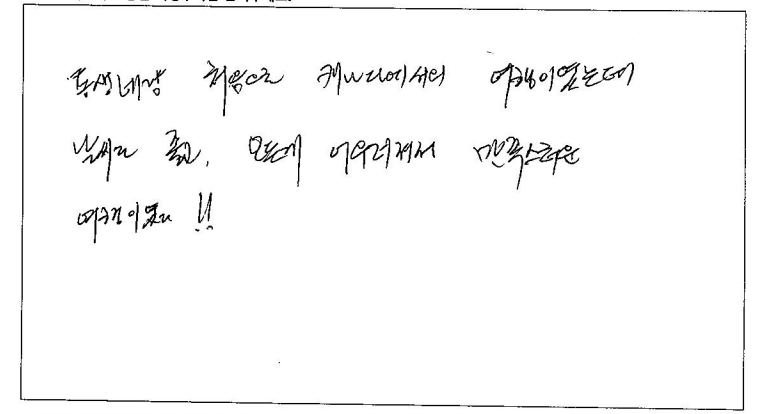 동생네랑 처음으로 캐나다에서의 여행이였는데
날씨도 좋고, 모든게 어우러져서 만족스러운
여행이였다 !!